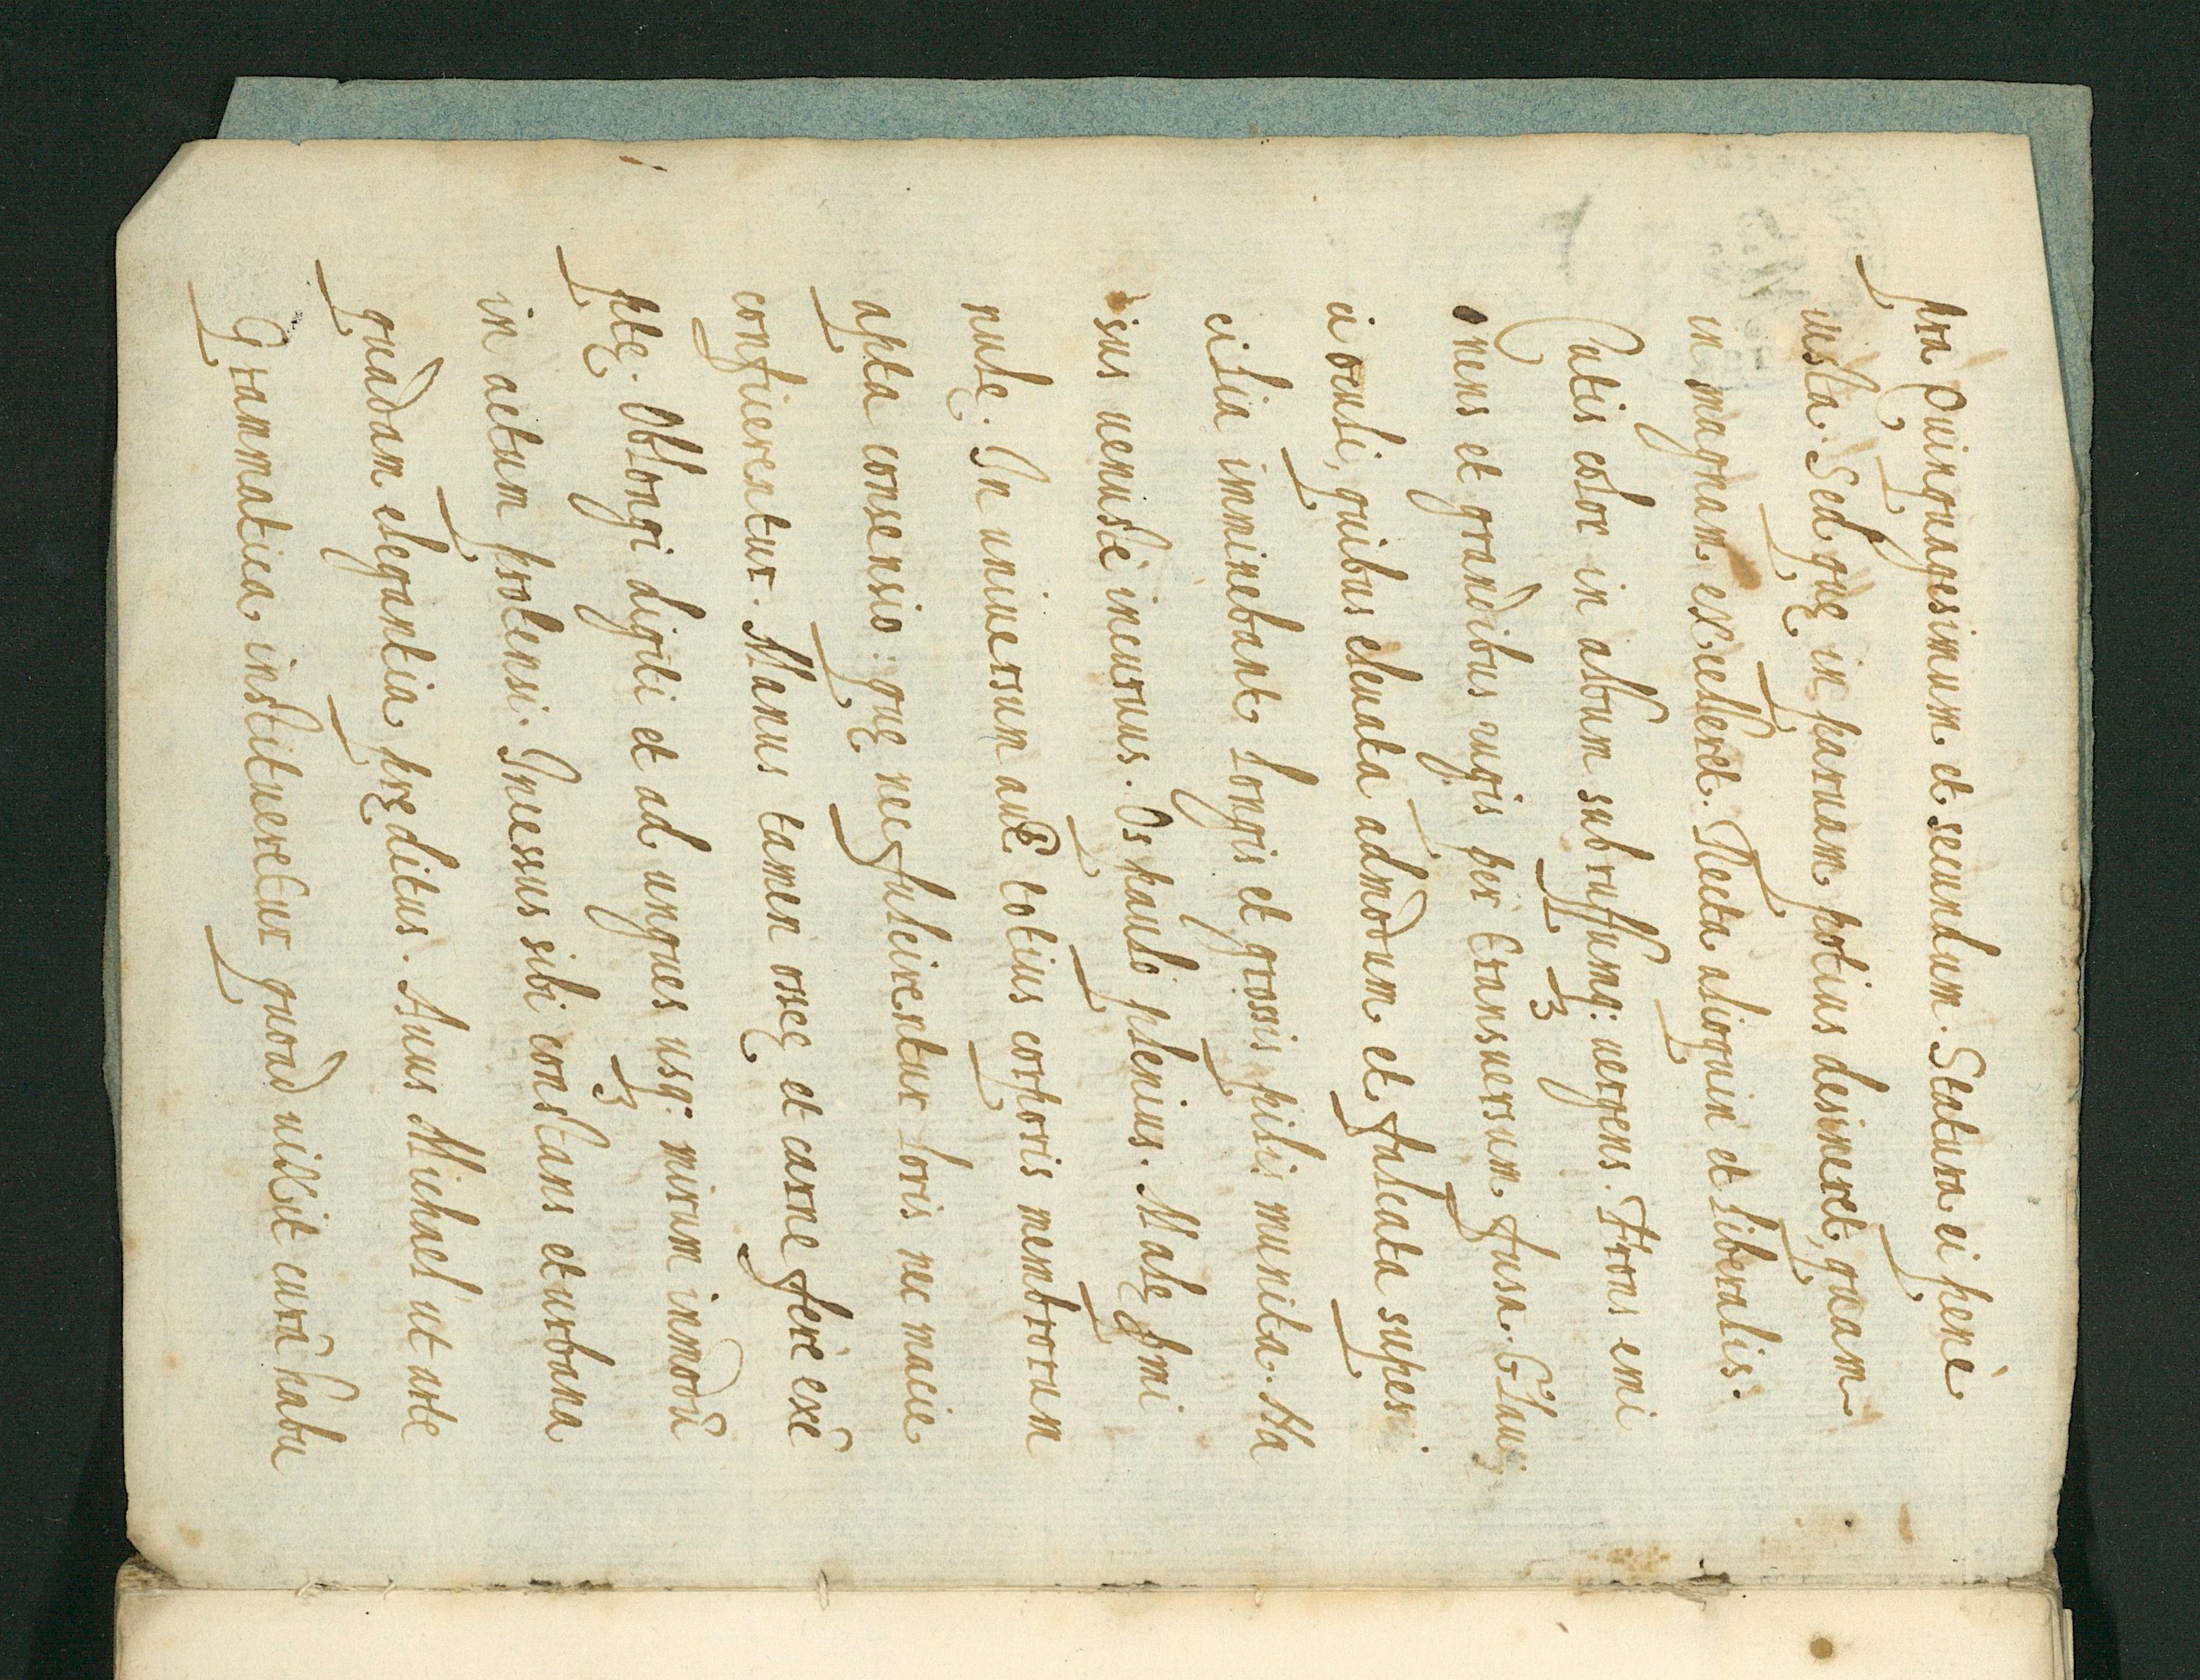 pra Quinquagesimum et secundum. Statura ei penè
iusta. Sed quę in paruam potius desineret, quam
in magnam excelleret. Recta alioquin et liberalis.
Cutis color in album subruffumq: uergens. Frons emi
nens et grandibus rugis per transuersum fusa. Glau
ci oculi, quibus eleuata admodum et falcata superi
cilia imminebant longis et grossis pilis munita. Na
sus uenustè incuruus. Os paulò plenius. Malę gemi
nulę. In uniuersum autē totius corporis membrorum
apta consensio: quę nec fulcirentur loris nec macie
conficerentur. Manus tamen ossę et carne ferè exē
ptę. Oblongi digiti et ad ungues usq: mirum inmodū
in actum protensi. Incessus sibi constans et urbana
quadam elegantia pręditus. Auus Michael ut arte
Grammatica institueretur quoad uixit curā habu